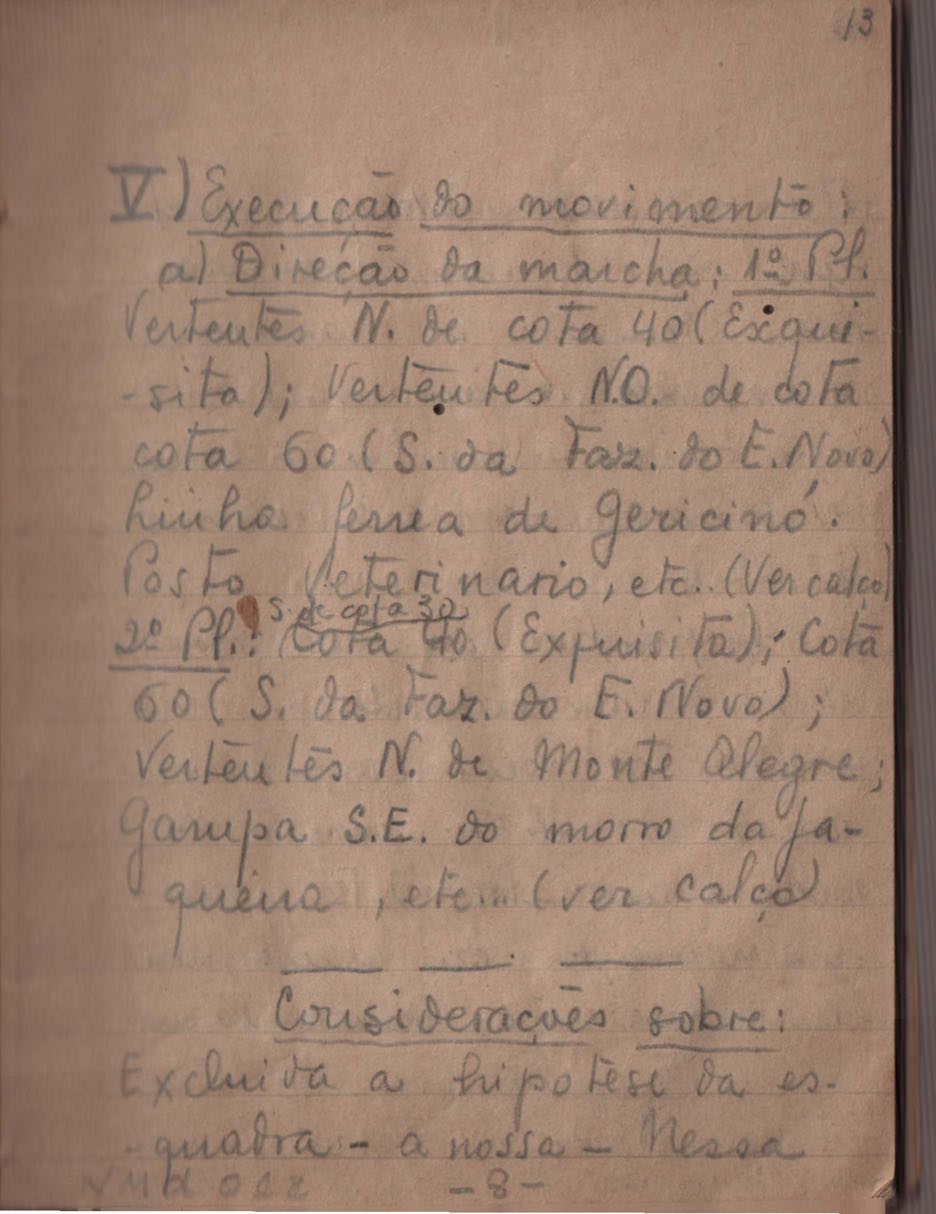 13
V) Execução do movimento:
a) Direção da marcha: 1º Pl.
Vertentes N. de cota 40 (Exqui-
-sita); Vertentes N.O. de cota
cota 60 (S. da Faz. do E. Novo)
Linha ferrea de Gericinó.
Posto Veterinario, etc.. (Ver calço)
S. de cota 30
2º Pl.: Cota 40 (Exquisita); Cota
60 (S. da Faz. do E. Novo);
Vertentes N. de Monte Alegre;
Garupa S.E. do morro da Ja-
queira, etc... (ver calço)
Considerações sobre:
Excluida a hipotese da es-
-quadra - a nossa - Nessa
- 8 -